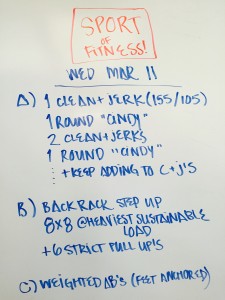 SPORT
OF
FITNESS!
WED MAR 11
A) 1 CLEAN+JERK (155/105)
1 ROUND "CINDY"
2 CLEAN+JERKS
1 ROUND "CINDY"
: +KEEP ADDING TO C+J'S
B) BACK RACK STEP UP
8x8 @HEAVIEST SUSTAINABLE
LOAD
+6 STRICT PULL UPS
C) WEIGHTED AB'S (FEET ANCHORED)